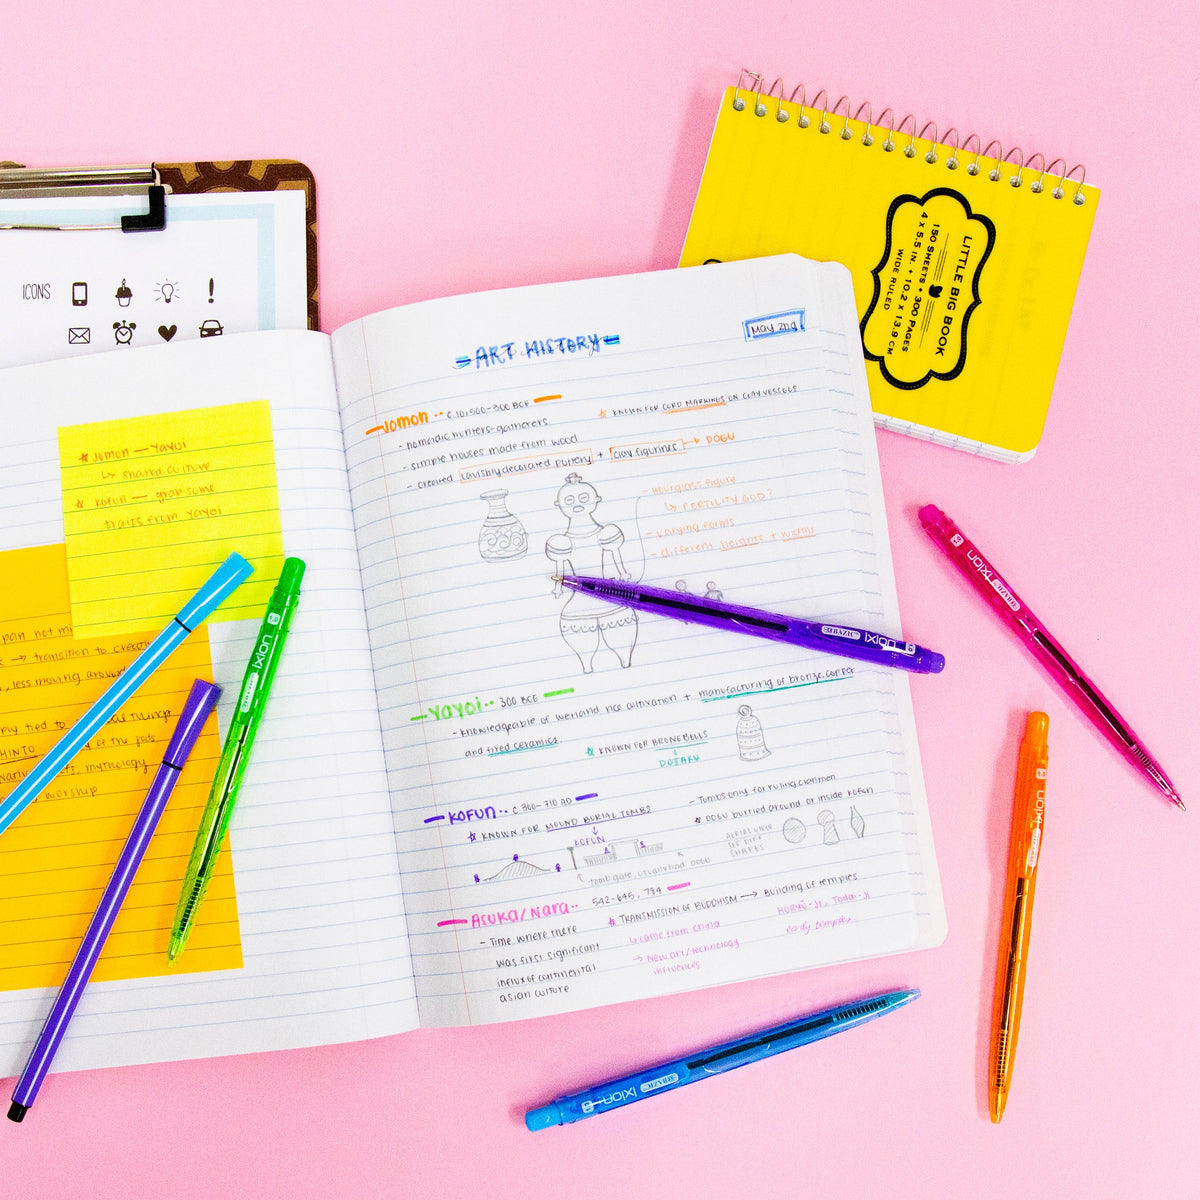 ICONS
LITTLE BIG BOOK
150 SHEETS • 300 PAGES
4 x 5.5 IN. • 10.2 x 13.9 CM
WIDE RULED
★ Jomon — Yayoi
↳ shared culture
★ Kofun — grab some
traits from Yayoi
pan not
→ transition to
, less moving around
tied to
HINTO
of the gods
, mythology
worship
ART HISTORY
May 2nd
Jomon •• C.10,500-300 BCE
- nomadic hunters-gatherers
- simple houses made from wood
- created lavishly decorated pottery + clay figurines → DOGU
☆ KNOWN FOR CORD MARKINGS ON CLAY VESSELS
- Hourglass figure
↳ FERTILITY GOD?
- varying forms
- different heights + widths
Yayoi •• 300 BCE
- knowledgeable of wetland rice cultivation + manufacturing of bronze, copper
and fired ceramics
☆ KNOWN FOR BRONE BELLS
↓
DOTAKU
KOFUN •• C.300-710 AD
☆ KNOWN FOR MOUND BURIAL TOMBS
↓
KOFUN
- Tombs only for ruling clanmen
★ DOGU burried around or inside kofun
AERIAL VIEW
SHAPES
tomb gate, usually had DOGU
Asuka/Nara •• 542-645, 784
- Time where there
was first significant
influx of continental
asian culture
☆ TRANSMISSION OF BUDDHISM → Building of temples
↳ came from China
→ New art/technology
influences
HORYŪ-JI, Todai-JI
early temples
ixion
BAZIC
ixion
BAZIC
ixion
BAZIC
ixion
ixion
BAZIC